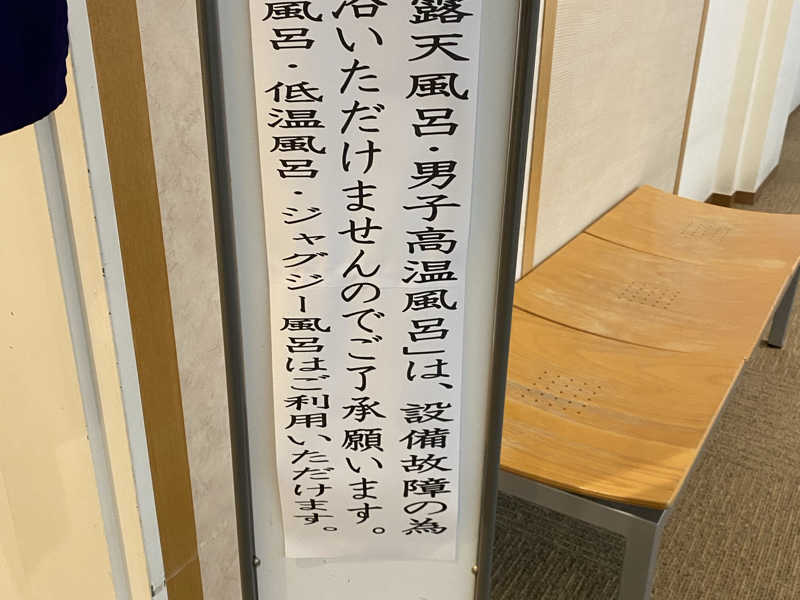 露天風呂・男子高温風呂」は、設備故障の為
浴いただけませんのでご了承願います。
風呂・低温風呂・ジャグジー風呂はご利用いただけます。